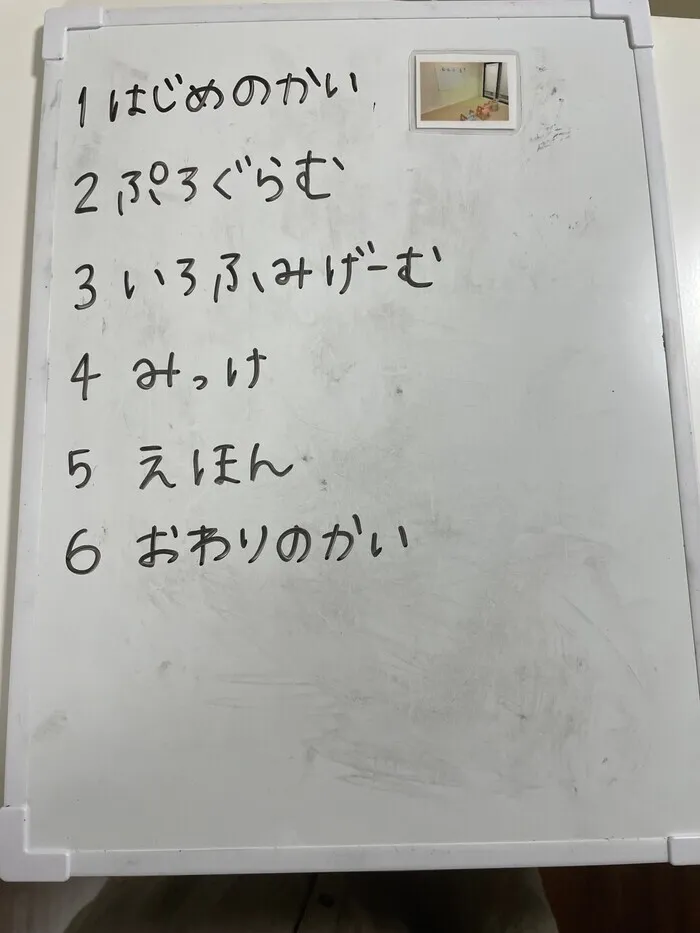 1 はじめのかい
2 ぷろぐらむ
3 いろふみげーむ
4 みっけ
5 えほん
6 おわりのかい